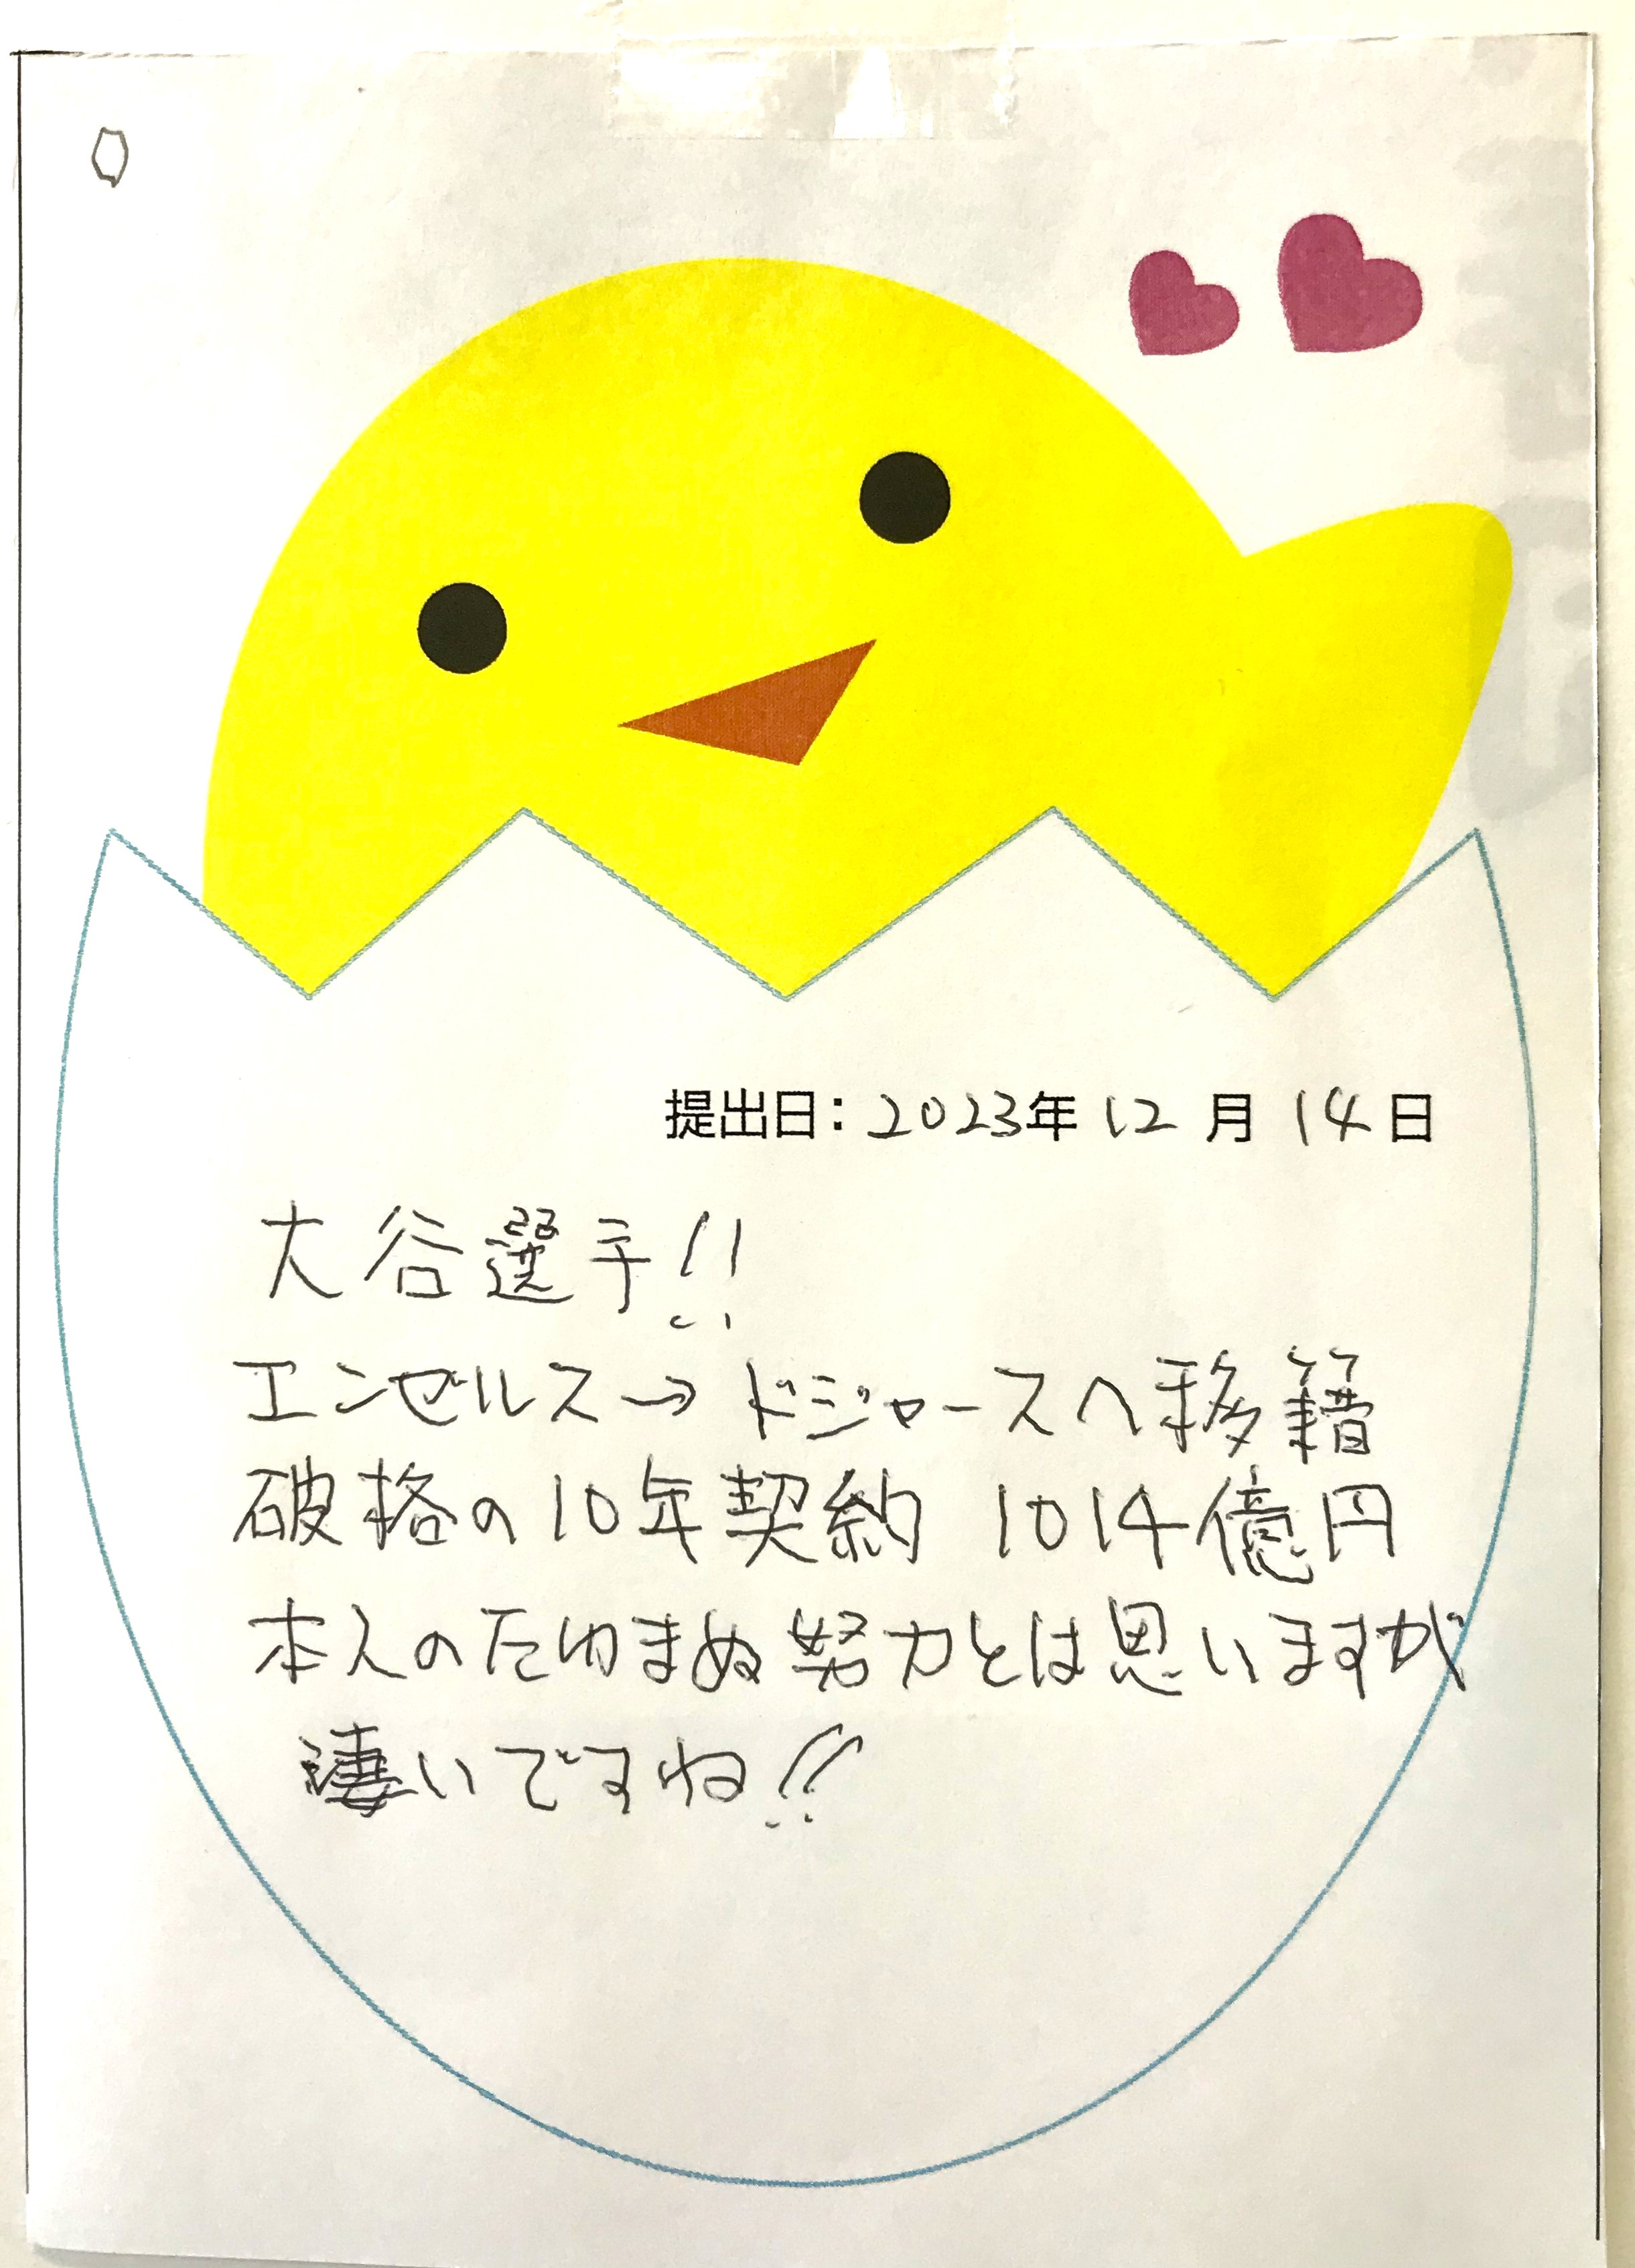 提出日：2023年12月14日
大谷選手!!
エンゼルス→ドジャースへ移籍
破格の10年契約 1014億円
本人のたゆまぬ努力とは思いますが
凄いですね!!